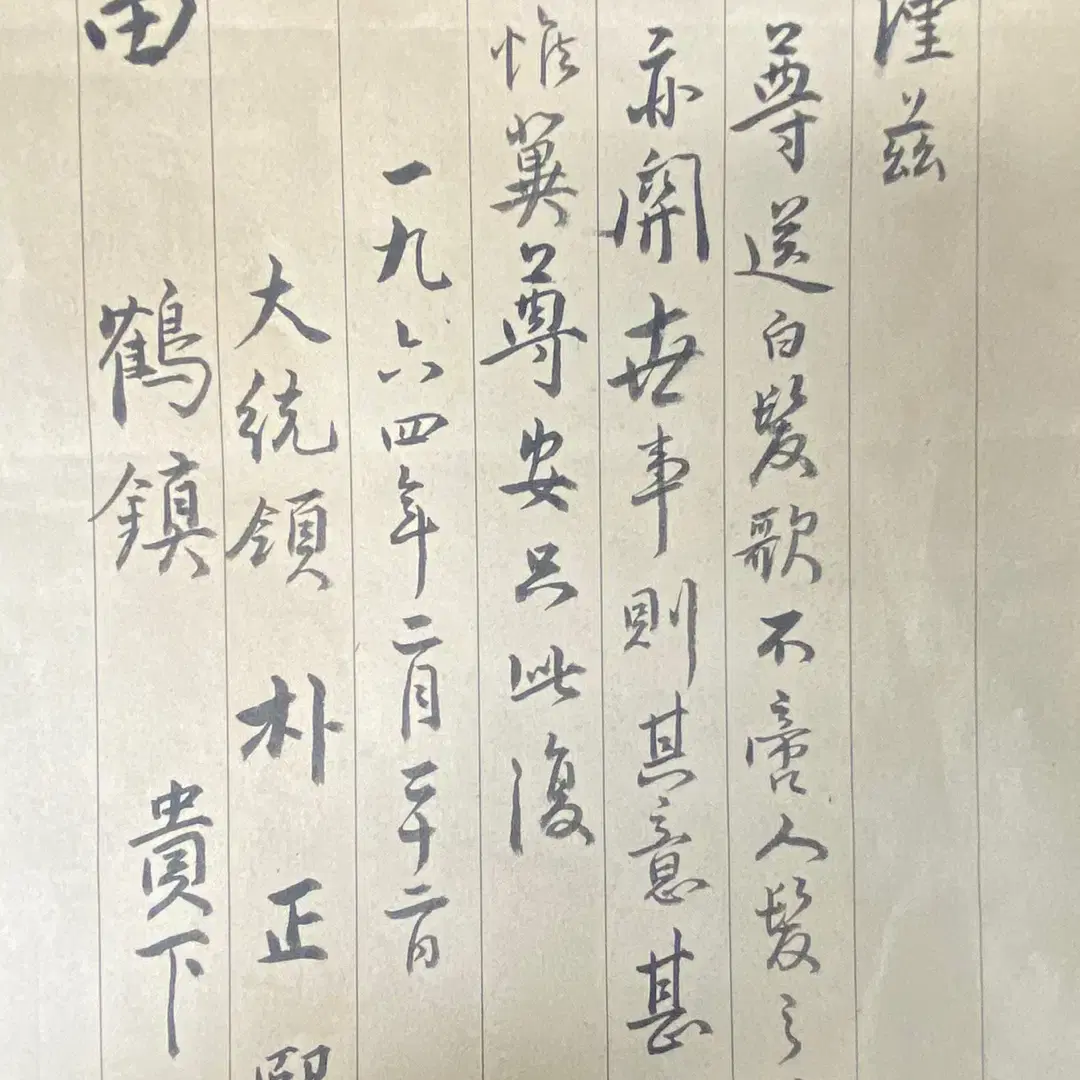 謹茲
尊送白髮歌不啻人髮之
亦關世事則其意甚
惟冀尊安只此復
一九六四年二月二十二日
大統領 朴正熙
田 鶴鎭 貴下